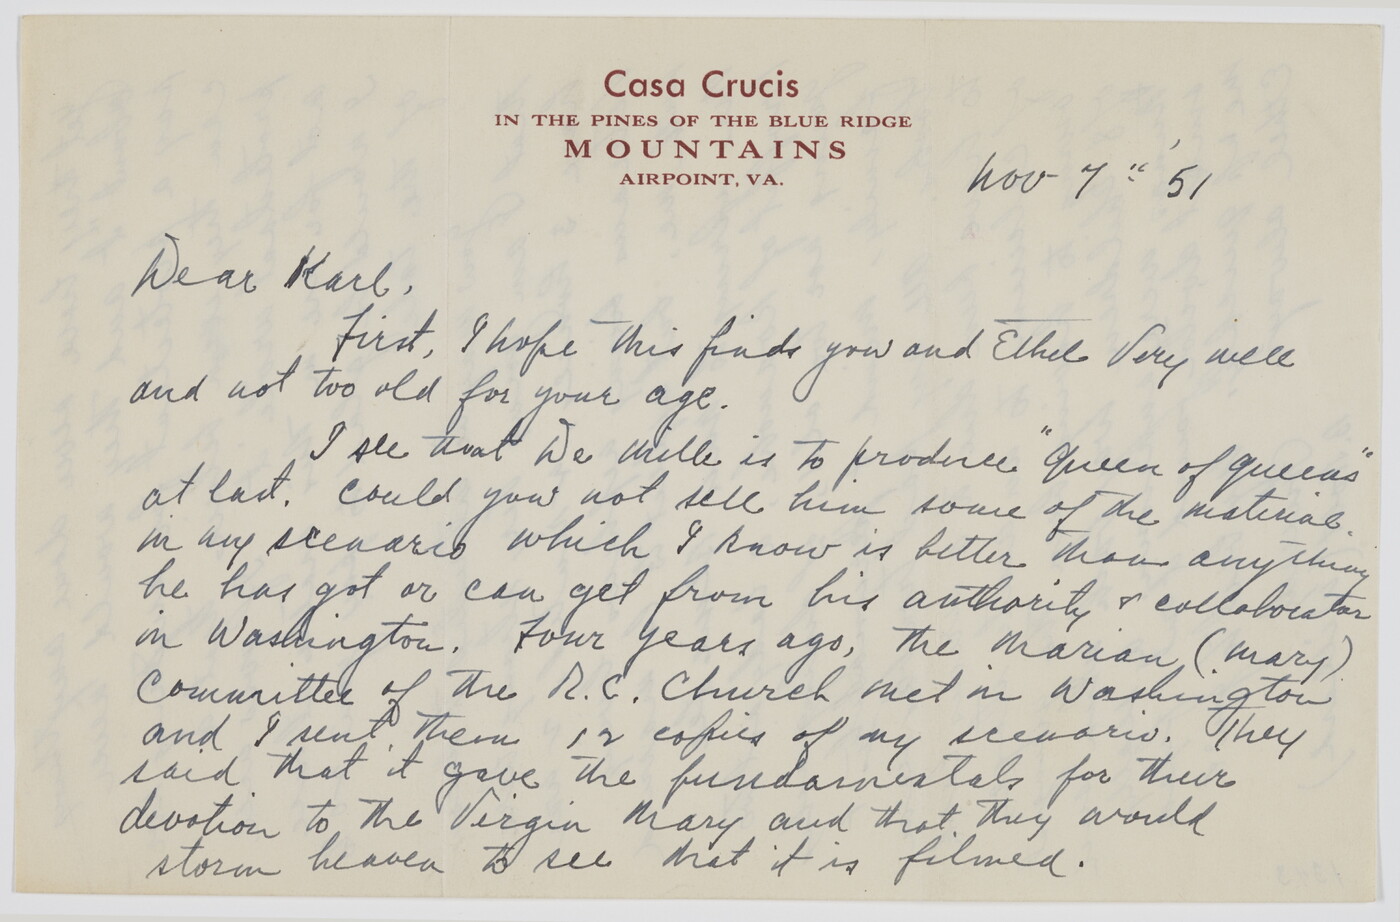 Casa Crucis
IN THE PINES OF THE BLUE RIDGE
MOUNTAINS
AIRPOINT, VA.
Nov 7th '51
Dear Karl,
First, I hope this finds you and Ethel very well
and not too old for your age.
I see that De Mille is to produce "Queen of Queens"
at last. Could you not sell him some of the material
in my scenario which I know is better than anything
he has got or can get from his authority & collaborator
in Washington. Four years ago, the Marian (Mary)
Committee of the R.C. Church met in Washington
and I sent them 12 copies of my scenario. They
said that it gave the fundamentals for their
devotion to the Virgin Mary and that they would
storm heaven to see that it is filmed.